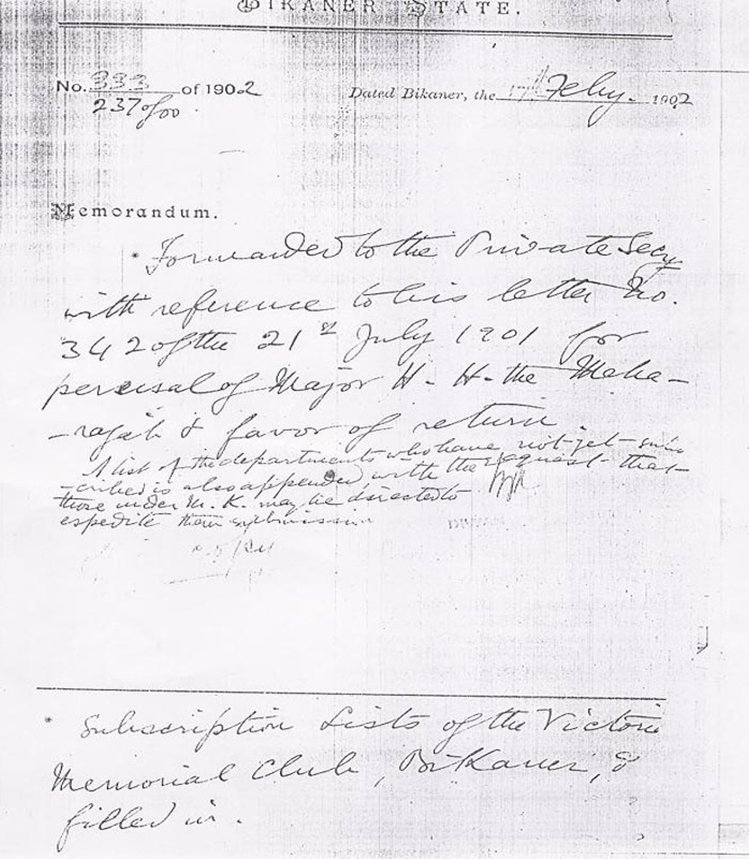 BIKANER STATE.
No. 333 of 1902
237 of 00
Dated Bikaner, the 17th Feby. 1902
Memorandum.
* Forwarded to the Private Secy
with reference to his letter No.
342 of the 21st July 1901 for
perusal of Major H. H. the Maha-
-rajah & favor of return.
A list of the departments who have not yet subs
-cribed is also appended with the request that
those under M. K. may be directed to
expedite their submission
* Subscription Lists of the Victoria
Memorial Club, Bikaner, &
filled in.